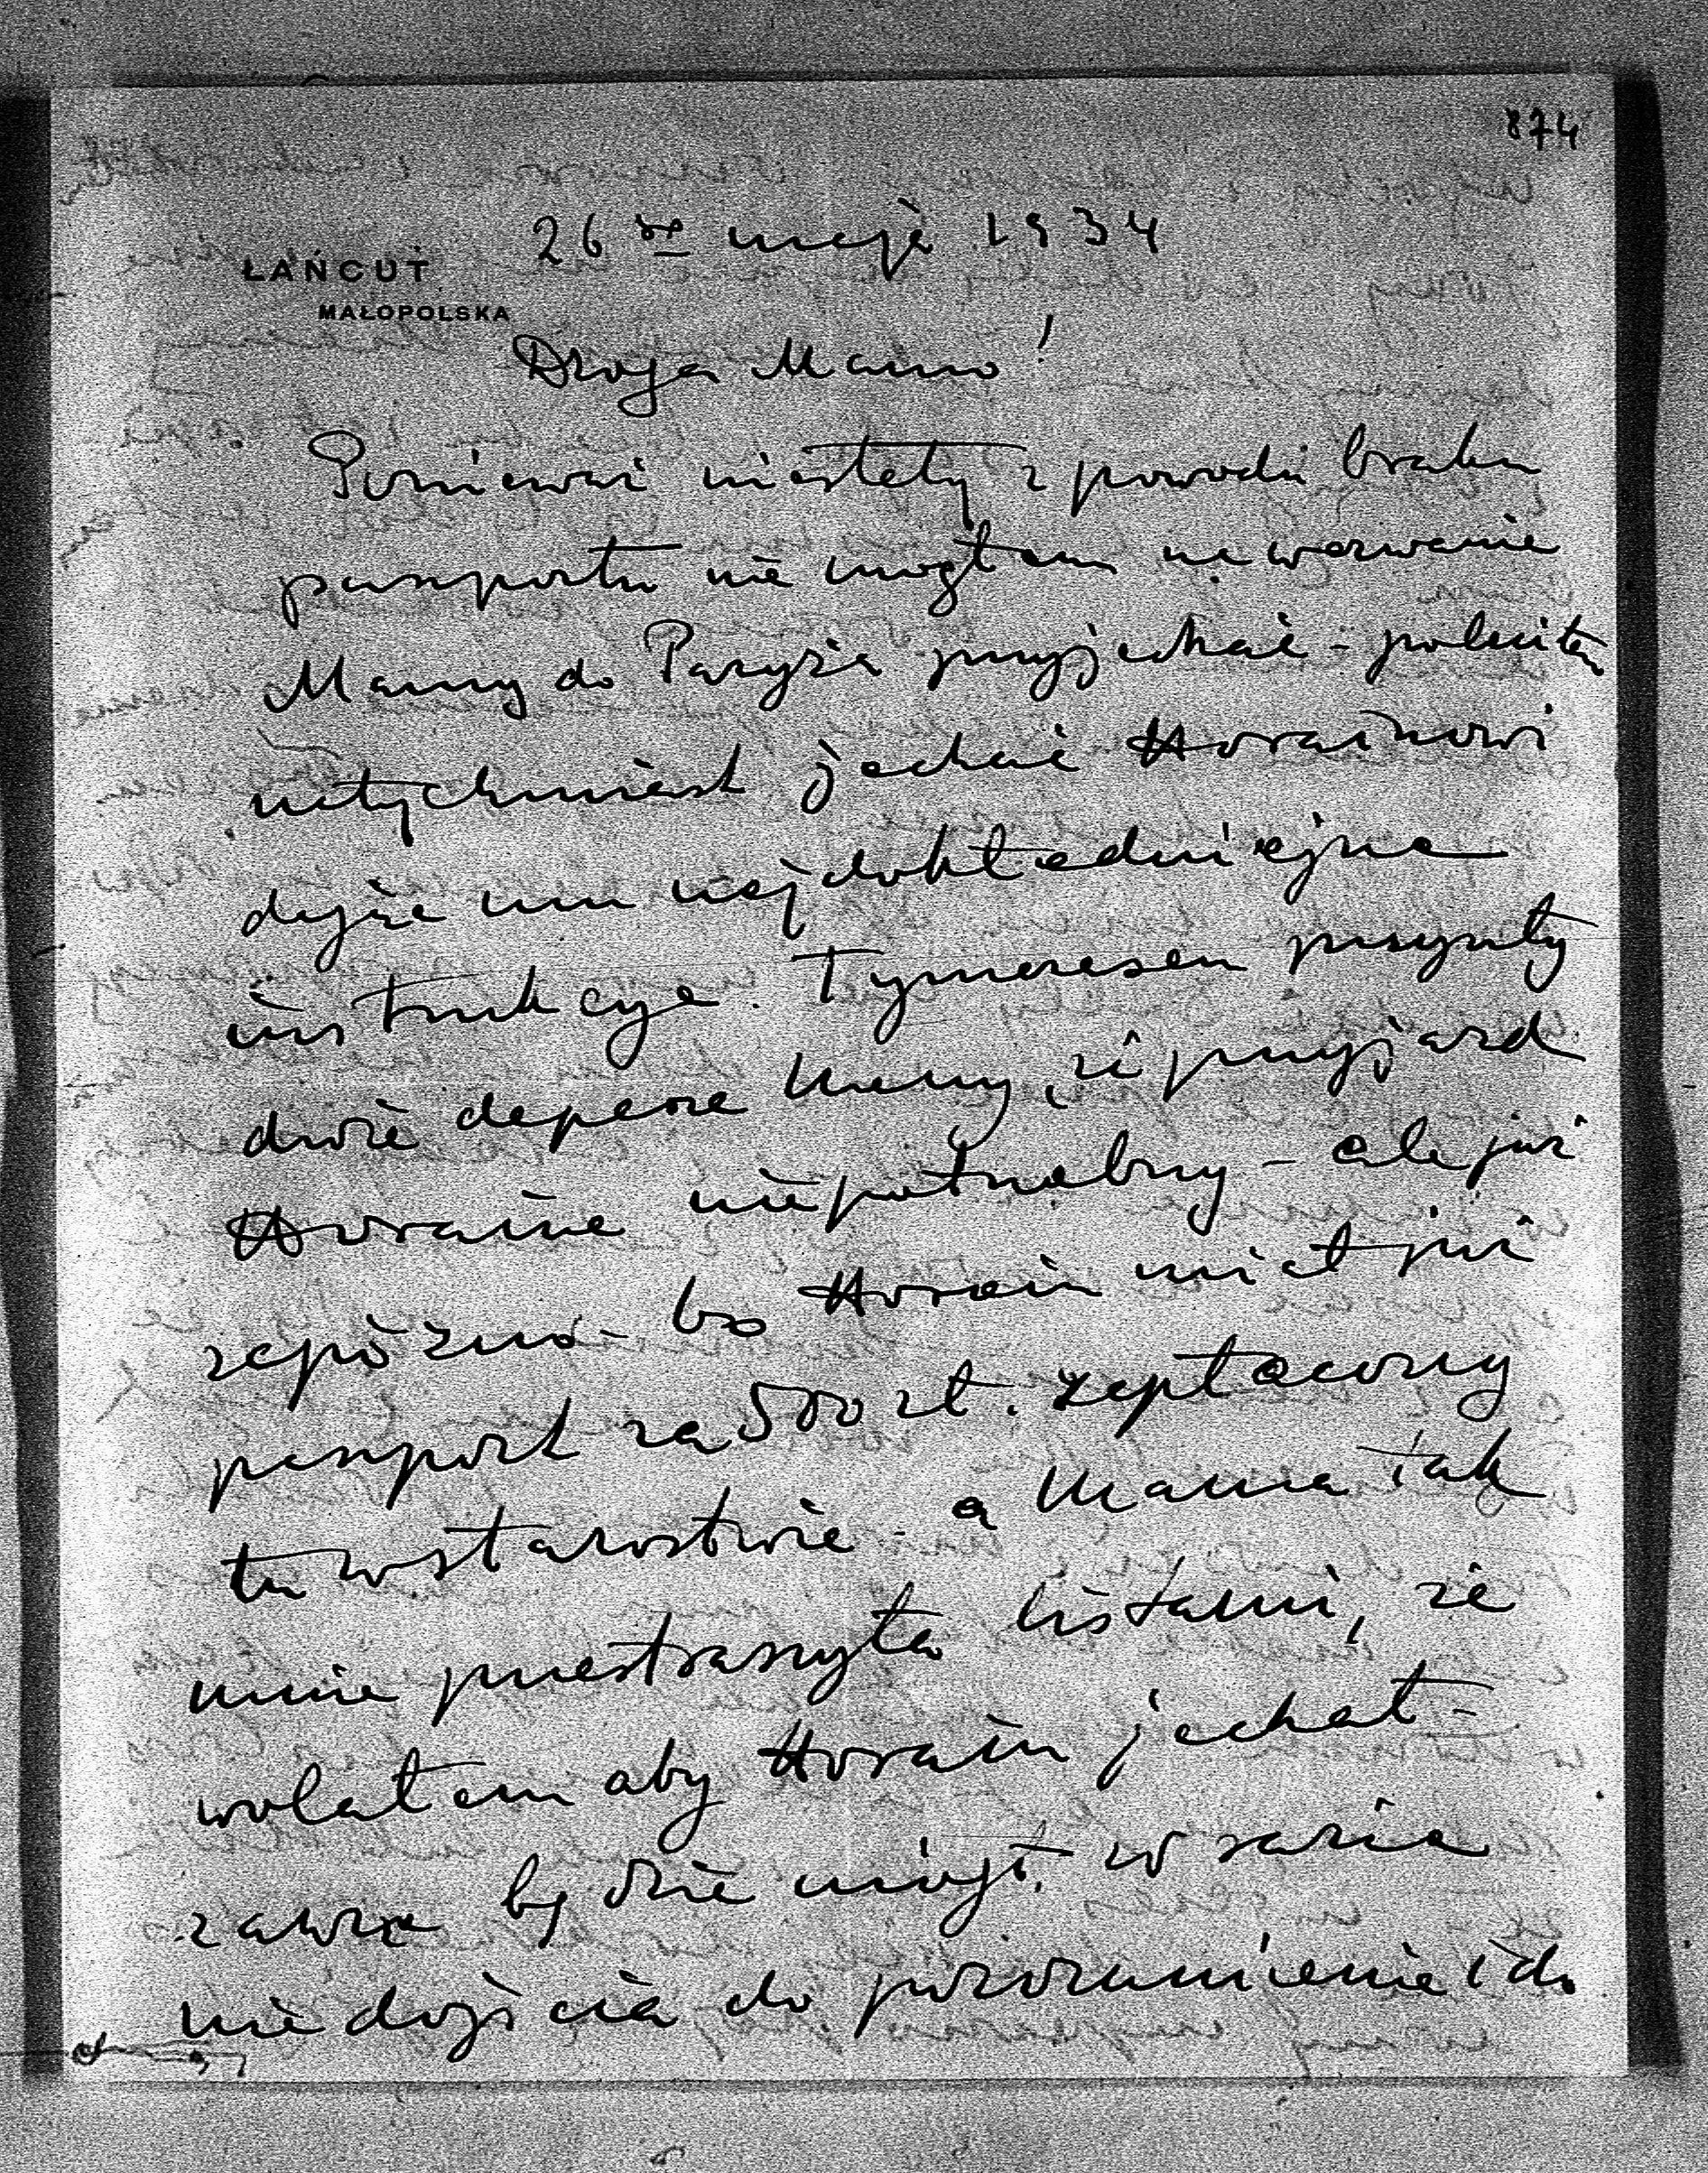 874
26go maja 1934
ŁAŃCUT
MAŁOPOLSKA
Droga Mamo!
Ponieważ niestety z powodu braku
paszportu nie mogłem na wezwanie
Mamy do Paryża przyjechać - poleciłem
natychmiast jechać Horainowi
dając mu najdokładniejsze
instrukcye. Tymczasem przyszły
dwie depesze Mamy, że przyjazd
Horaina niepotrzebny - ale już
zapóźno - bo Horain miał już
paszport za 500 zł. zapłacony
tu w starostwie - a Mama tak
mnie przestraszyła listami, że
wolałem aby Horain jechał -
zawsze będzie mógł w razie
nie dojścia do porozumienia i do